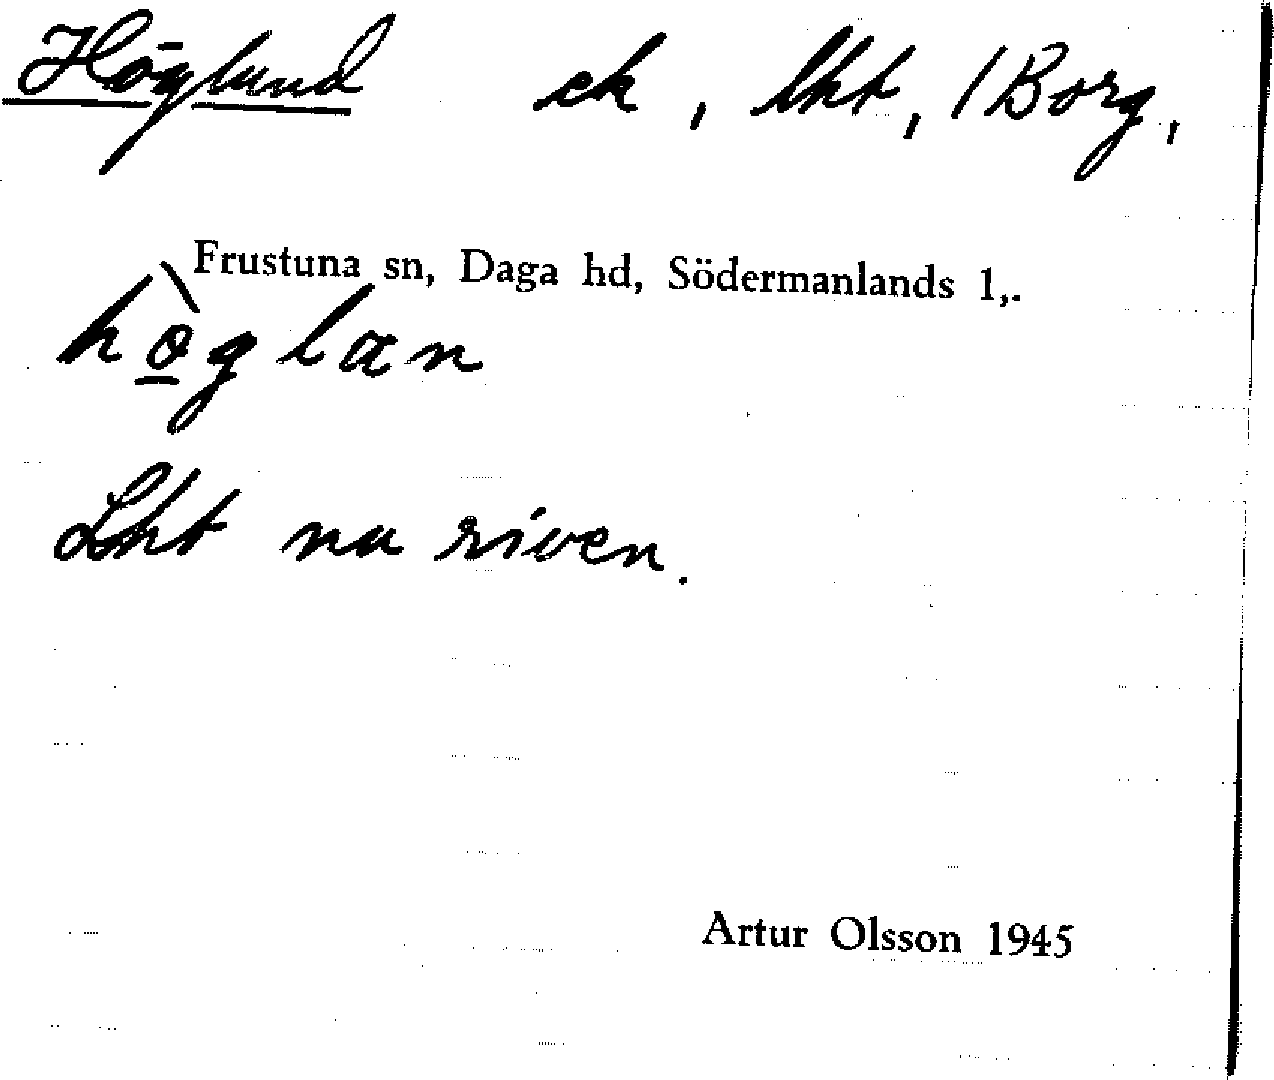 Höglund ek, lht, /Borg,
Frustuna sn, Daga hd, Södermanlands l,.
hö̀glan
Lht nu riven.
Artur Olsson 1945